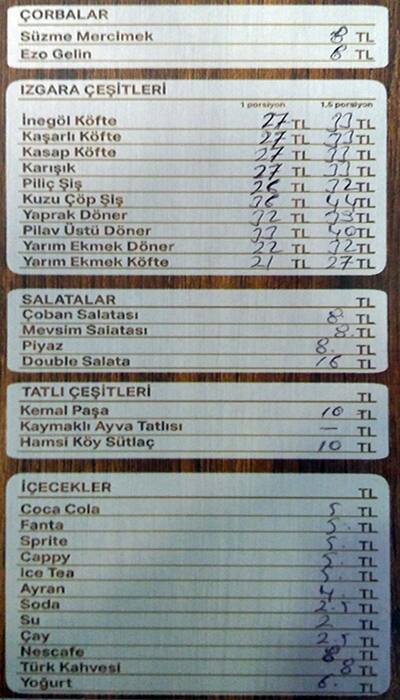 ÇORBALAR
Süzme Mercimek 8 TL
Ezo Gelin 8 TL
IZGARA ÇEŞİTLERİ
1 porsiyon 1,5 porsiyon
İnegöl Köfte 27 TL 33 TL
Kaşarlı Köfte 27 TL 33 TL
Kasap Köfte 27 TL 33 TL
Karışık 27 TL 33 TL
Piliç Şiş 26 TL 32 TL
Kuzu Çöp Şiş 36 TL 44 TL
Yaprak Döner 32 TL 39 TL
Pilav Üstü Döner 33 TL 40 TL
Yarım Ekmek Döner 22 TL 32 TL
Yarım Ekmek Köfte 21 TL 27 TL
SALATALAR TL
Çoban Salatası 8. TL
Mevsim Salatası 8. TL
Piyaz 8. TL
Double Salata 16 TL
TATLI ÇEŞİTLERİ TL
Kemal Paşa 10 TL
Kaymaklı Ayva Tatlısı — TL
Hamsi Köy Sütlaç 10 TL
İÇECEKLER TL
Coca Cola 5 TL
Fanta 5. TL
Sprite 5. TL
Cappy 5. TL
Ice Tea 5. TL
Ayran 4. TL
Soda 2.5 TL
Su 2 TL
Çay 2.5 TL
Nescafe 8 TL
Türk Kahvesi 8 TL
Yoğurt 6. TL